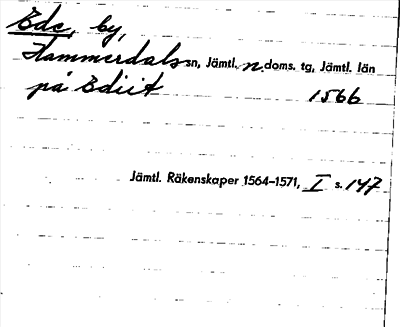 Ede, by,
Hammerdals sn, Jämtl. n. doms. tg, Jämtl. län
på Ediit 1566
Jämtl. Räkenskaper 1564–1571, I s. 147